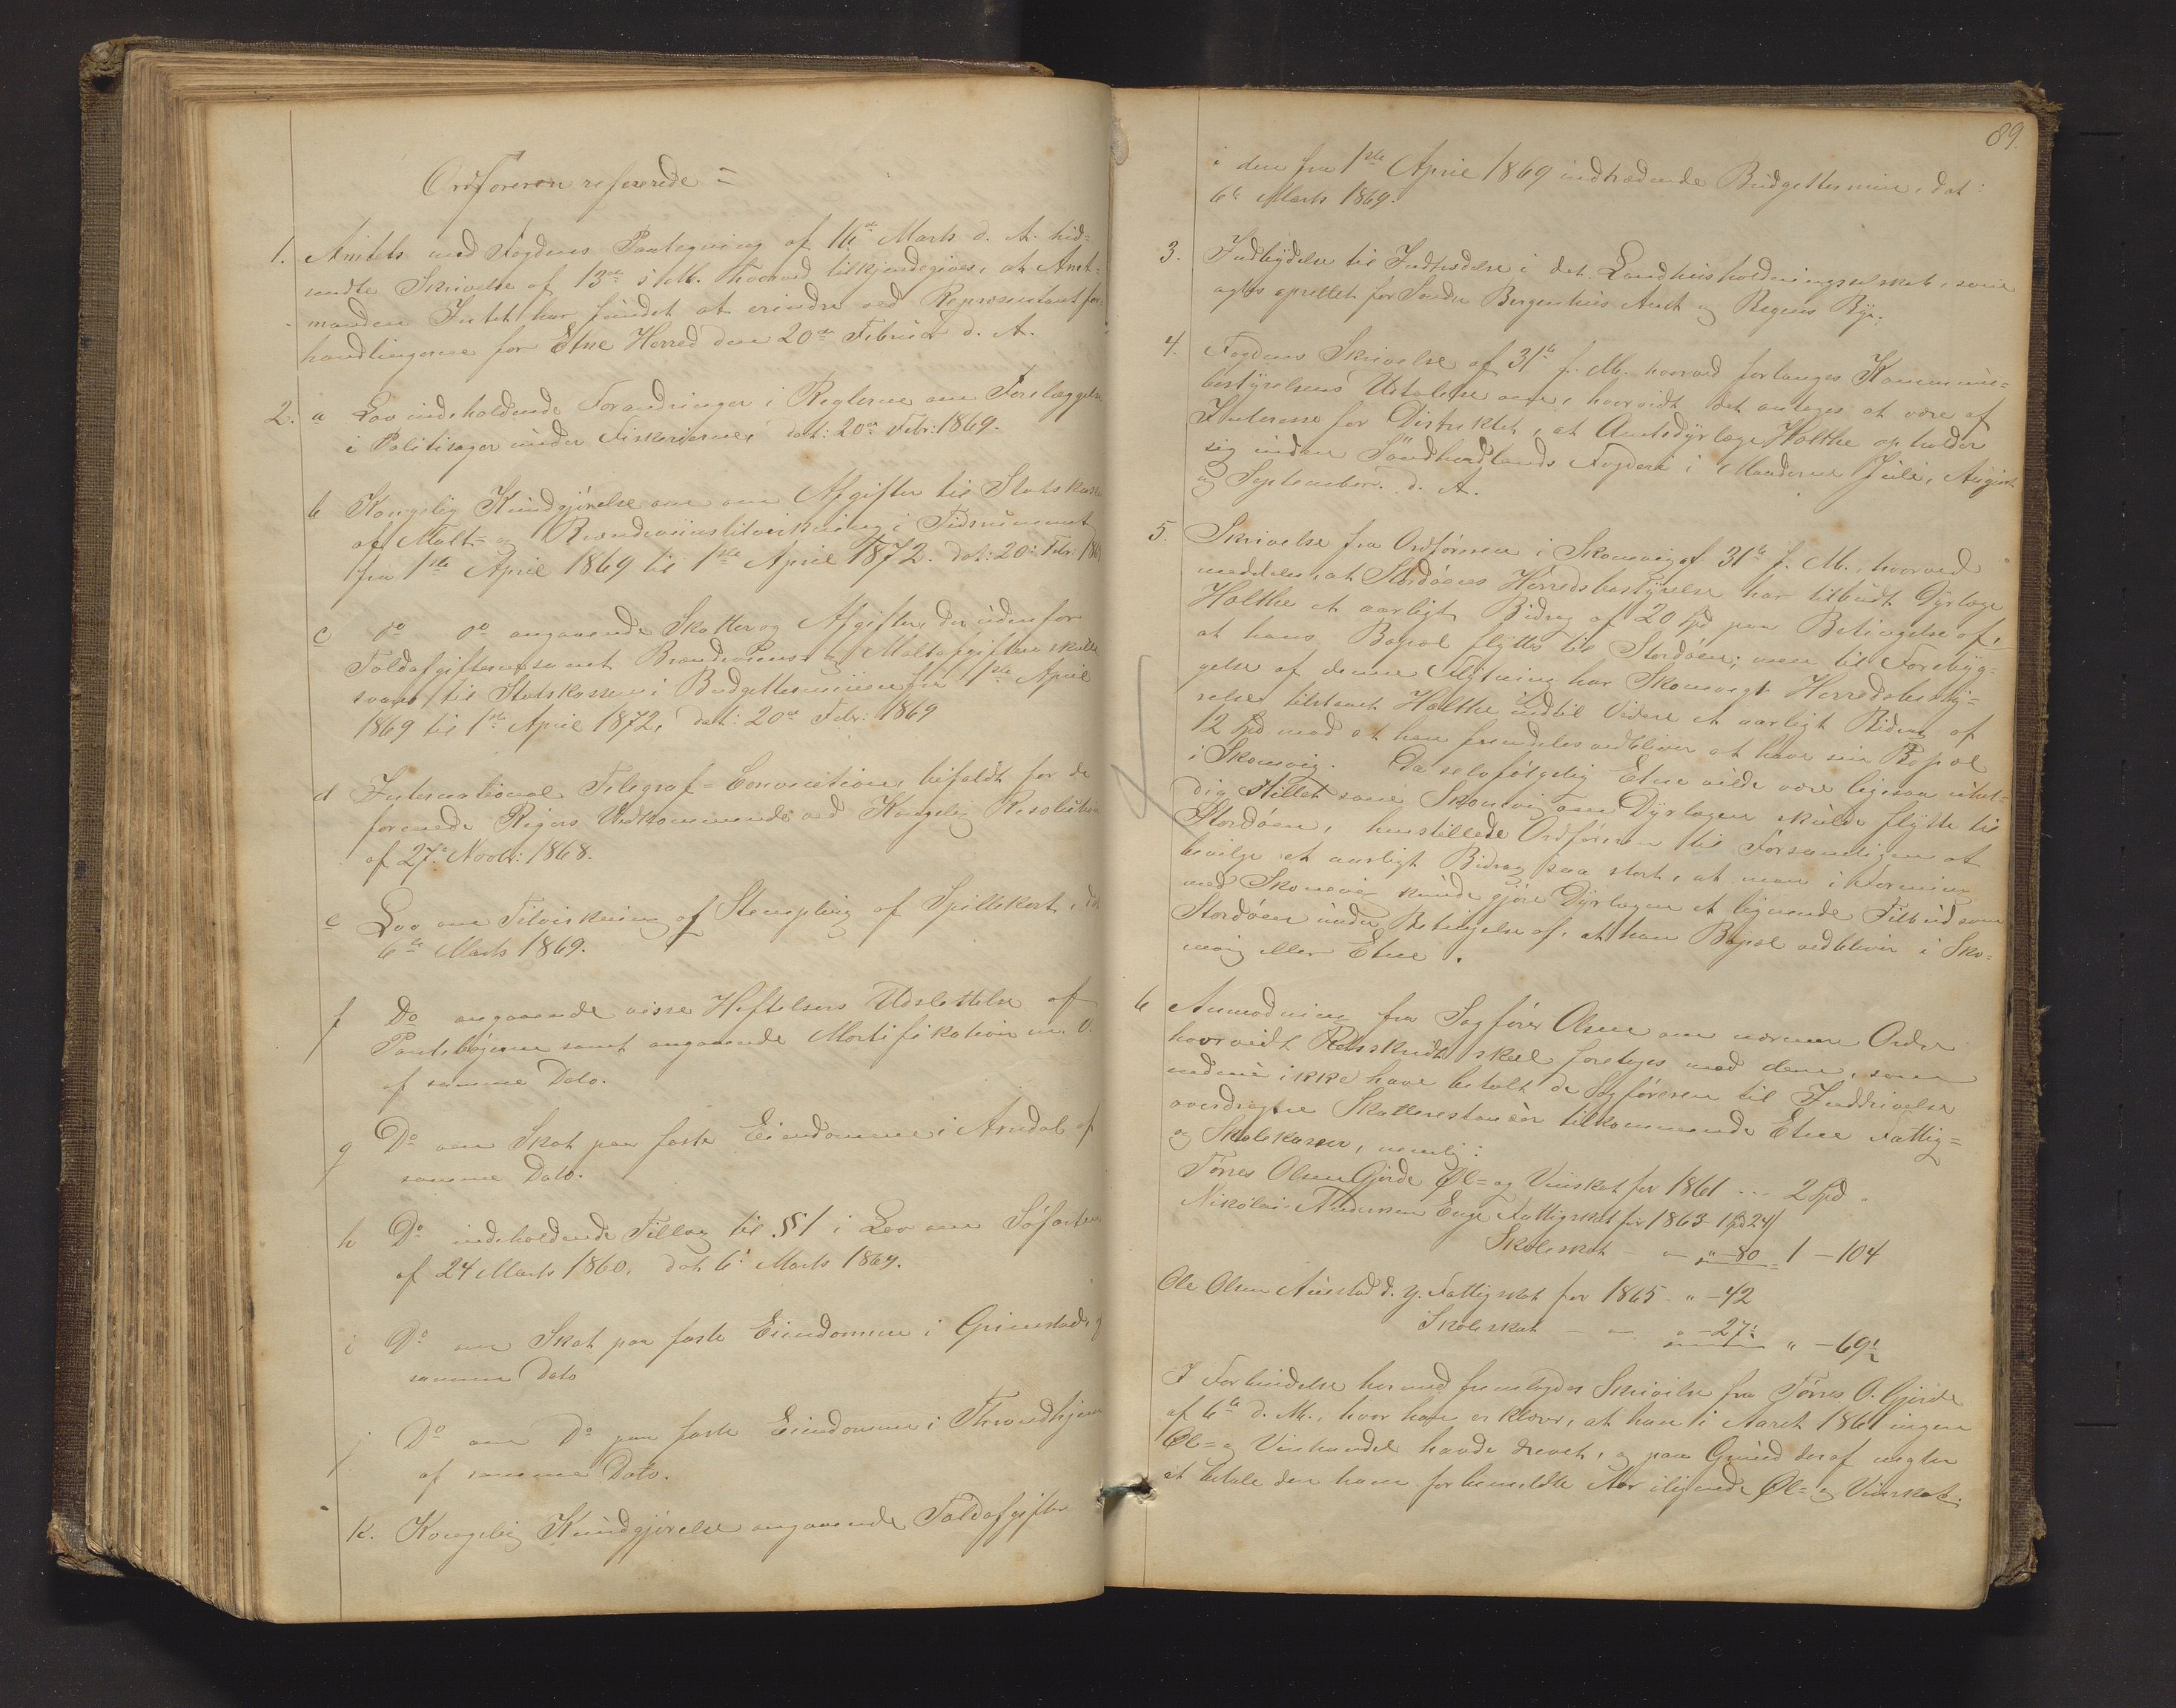 Ordføreren refererede =
1. Amtets med Fogdens Paategning af 16de Marts d. A. hid-
sendte Skrivelse af 13de s. M. hvorved tilkjendegives, at Amt-
manden Intet har fundet at erindre ved Repræsentantfor-
handlingerne for Etne Herred den 20de Februar d. A.
2. a Lov indeholdende Forandringer i Reglerne om Forelæggelse
i Politisager under Fiskerierne, dat: 20de Febr: 1869.
b Kongelig Kundgjørelse om om Afgifter til Statskassen
af Malt- og Brændeviinstilvirkning i Tidsrummet
fra 1ste April 1869 til 1ste April 1872. dat: 20: Febr: 1869
c do do angaaende Skatter og Afgifter, der udenfor
Toldafgifterne samt Brændeviins- og Maltafgiften skulle
svares til Statskassen i Budgetterminen fra 1ste April
1869 til 1ste April 1872, dat: 20de Febr: 1869
d International Telegraf-Convention, bifaldt for de
forenede Rigers Vedkommende ved Kongelig Resolution
af 27de Novbr: 1868.
e Lov om Tilvirkning af Stempling af Spillekort,
6te Marts 1869.
f Do angaaende visse Heftelsers Udslettelse af
Pantebøgerne samt angaaende Mortifikation m. v.
af samme Dato.
g Do om Skat paa faste Eiendomme i Arndal af
samme Dato.
h Do indeholdende Tillæg til § 1 i Lov om Søfarten
af 24 Marts 1860, dat 6te Marts 1869.
i Do om Skat paa faste Eiendomme i Grimstad, af
samme Dato
j Do om Do paa faste Eiendomme i Throndhjem
af samme Dato.
k. Kongelig Kundgjørelse angaaende Toldafgifter
89.
i den fra 1ste April 1869 indtrædende Budgettermin, dat:
6te Marts 1869.
3. Indbydelse til Indtrædelse i det Landhuusholdningsselskab, som
agtes oprettet for Søndre Bergenhuus Amt og Bergens By.
4. Fogdens Skrivelse af 31te f. M. hvorved forlanges Kommune-
bestyrelsens Udtalelse om, hvorvidt det antages at være af
Interesse for Distriktet, at Amtsdyrlæge Holthe opholder
sig inden Søndhordlands Fogderi i Maanederne Juli, August
og September d. A.
5. Skrivelse fra Ordføreren i Skonevig af 31te f. M., hvorved
meddeles, at Stordøens Herredsbestyrelse har tilbudt Dyrlæge
Holthe et aarligt Bidrag af 20 Spd paa Betingelse af,
at hans Bopæl flyttes til Stordøen; men til Forebyg-
gelse af denne Flytning har Skonevigs Herredsbesty-
relse tilstaaet Holthe indtil Videre et aarligt Bidrag af
12 Spd mod at han fremdeles vedbliver at have sin Bopæl
i Skonevig. Da selvfølgelig Etne vilde være ligesaa uhel-
dig stillet som Skonevig om Dyrlægen skulde flytte til
Stordøen, henstillede Ordføreren til Forsamlingen at
bevilge et aarligt Bidrag saa stort, at man i Forening
med Skonevig kunde gjøre Dyrlægen et lignende Tilbud som
Stordøen under Betingelse af, at han Bopæl vedbliver i Sko-
nevig eller Etne.
6 Anmodning fra Sagfører Olsen om nærmere Ordre
hvorvidt Retsskridt skal foretages mod dem, som
endnu ikke have betalt de Sagføreren til Inddrivelse
overdragne Skatterestancer tilkommende Etne Fattig-
og Skolekasser, nemlig:
Tørres Olsen Gjerde Øl- og Vinskat for 1861 - - - 2 Spd "
Nikolai Andersen Enge Fattigskat for 1863 1 Spd 24
Skoleskat - - " - 80 = 1 - 104
Ole Olsen Austad d. y. Fattigskat for 1865 " - 42
Skoleskat - - " - 27½ " - 69½
I Forbindelse hermed fremlagdes Skrivelse fra Tørres O. Gjerde
af 6te d. M., hvor han erklærer, at han i Aaret 1861 ingen
Øl- og Vinhandel havde drevet, og paa Grund deraf negter
at betale den ham for bemeldte Aar ilignede Øl- og Vinskat.